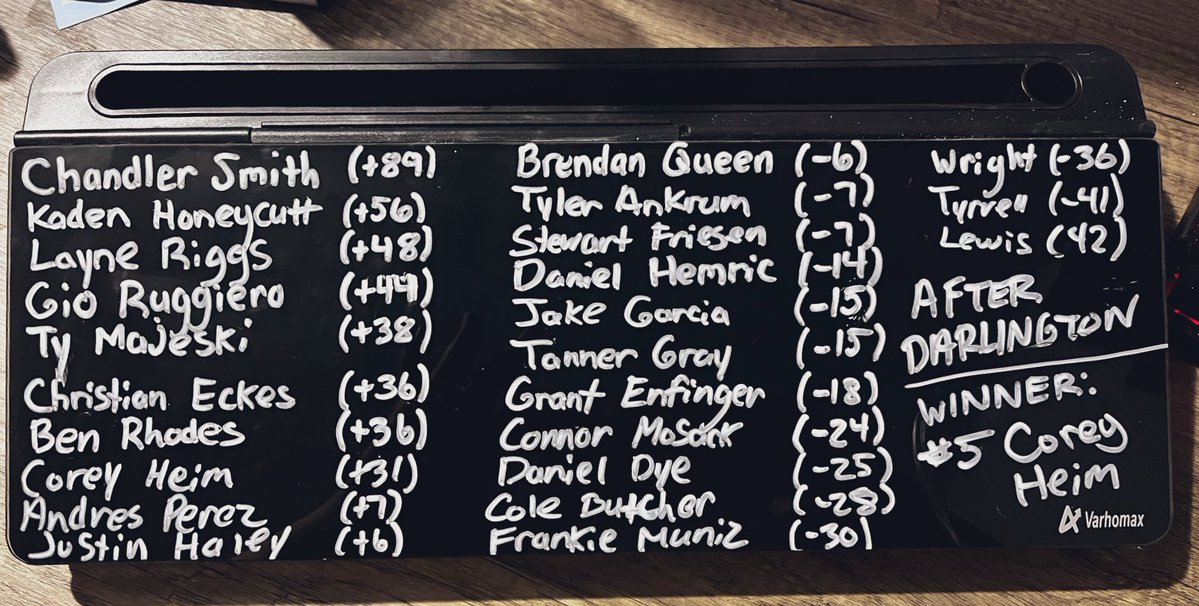 Chandler Smith (+89)
Kaden Honeycutt (+56)
Layne Riggs (+48)
Gio Ruggiero (+44)
Ty Majeski (+38)
Christian Eckes (+36)
Ben Rhodes (+36)
Corey Heim (+31)
Andres Perez (+7)
Justin Haley (+6)
Brendan Queen (-6)
Tyler Ankrum (-7)
Stewart Friesen (-7)
Daniel Hemric (-14)
Jake Garcia (-15)
Tanner Gray (-15)
Grant Enfinger (-18)
Connor Mosack (-24)
Daniel Dye (-25)
Cole Butcher (-28)
Frankie Muniz (-30)
Wright (-36)
Tyrrell (-41)
Lewis (42)
AFTER
DARLINGTON
WINNER:
#5 Corey
Heim
Varhomax